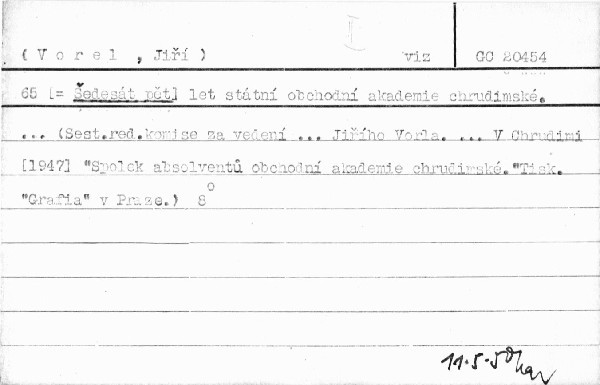 ( V o r e l , Jiří ) viz GC 20454
65 [= Šedesát pět] let státní obchodní akademie chrudimské.
... (Sest.red.komise za vedení ... Jiřího Vorla. ... V Chrudimi
[1947] "Spolek absolventů obchodní akademie chrudimské."Tisk.
"Grafia" v Praze.) 8°
11.5.5